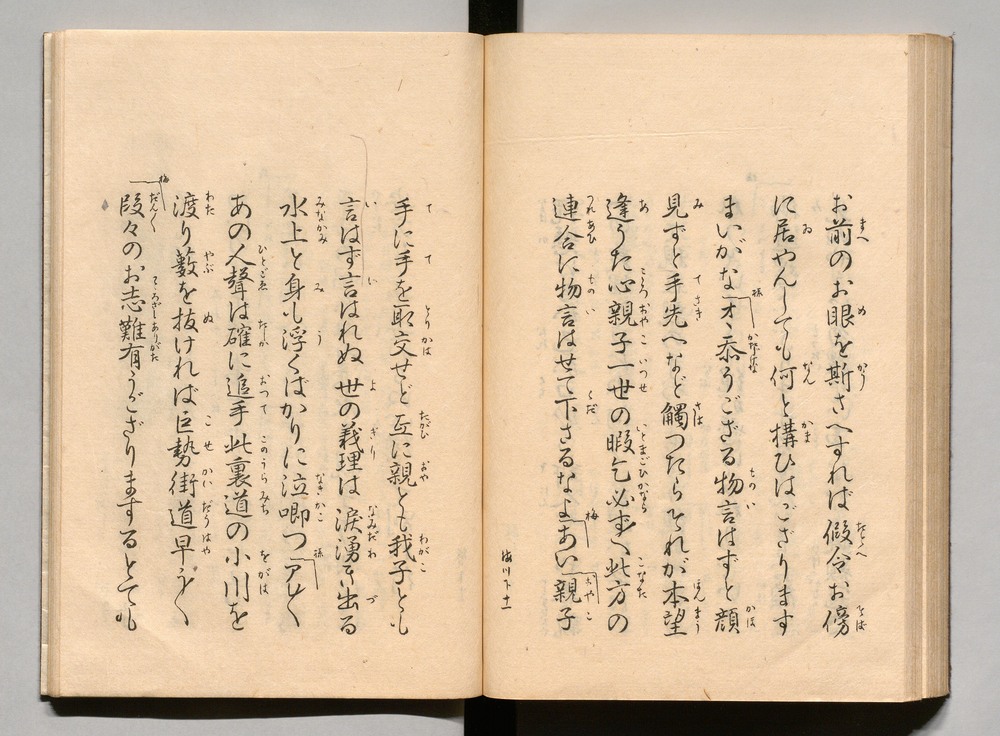 お前のお眼を斯さへすれば假令お傍
に居やんしても何と搆ひはござります
まいがな 孫 オヽ忝うござる物言はずと顔
見ずと手先へなど觸つたらそれが本望
逢うた心親子一世の暇乞必ず〳〵此方の
連合に物言はせて下さるなよ 梅 あい 親子
梅川下十一
手に手を取交せど互に親とも我子とも
言はず言はれぬ世の義理は涙湧き出る
水上と身も浮くばかりに泣喞つ 孫 アレ〳〵
あの人聲は確に追手此裏道の小川を
渡り藪を抜ければ巨勢街道早う〳〵
梅 段々のお志難有うござりまするとても